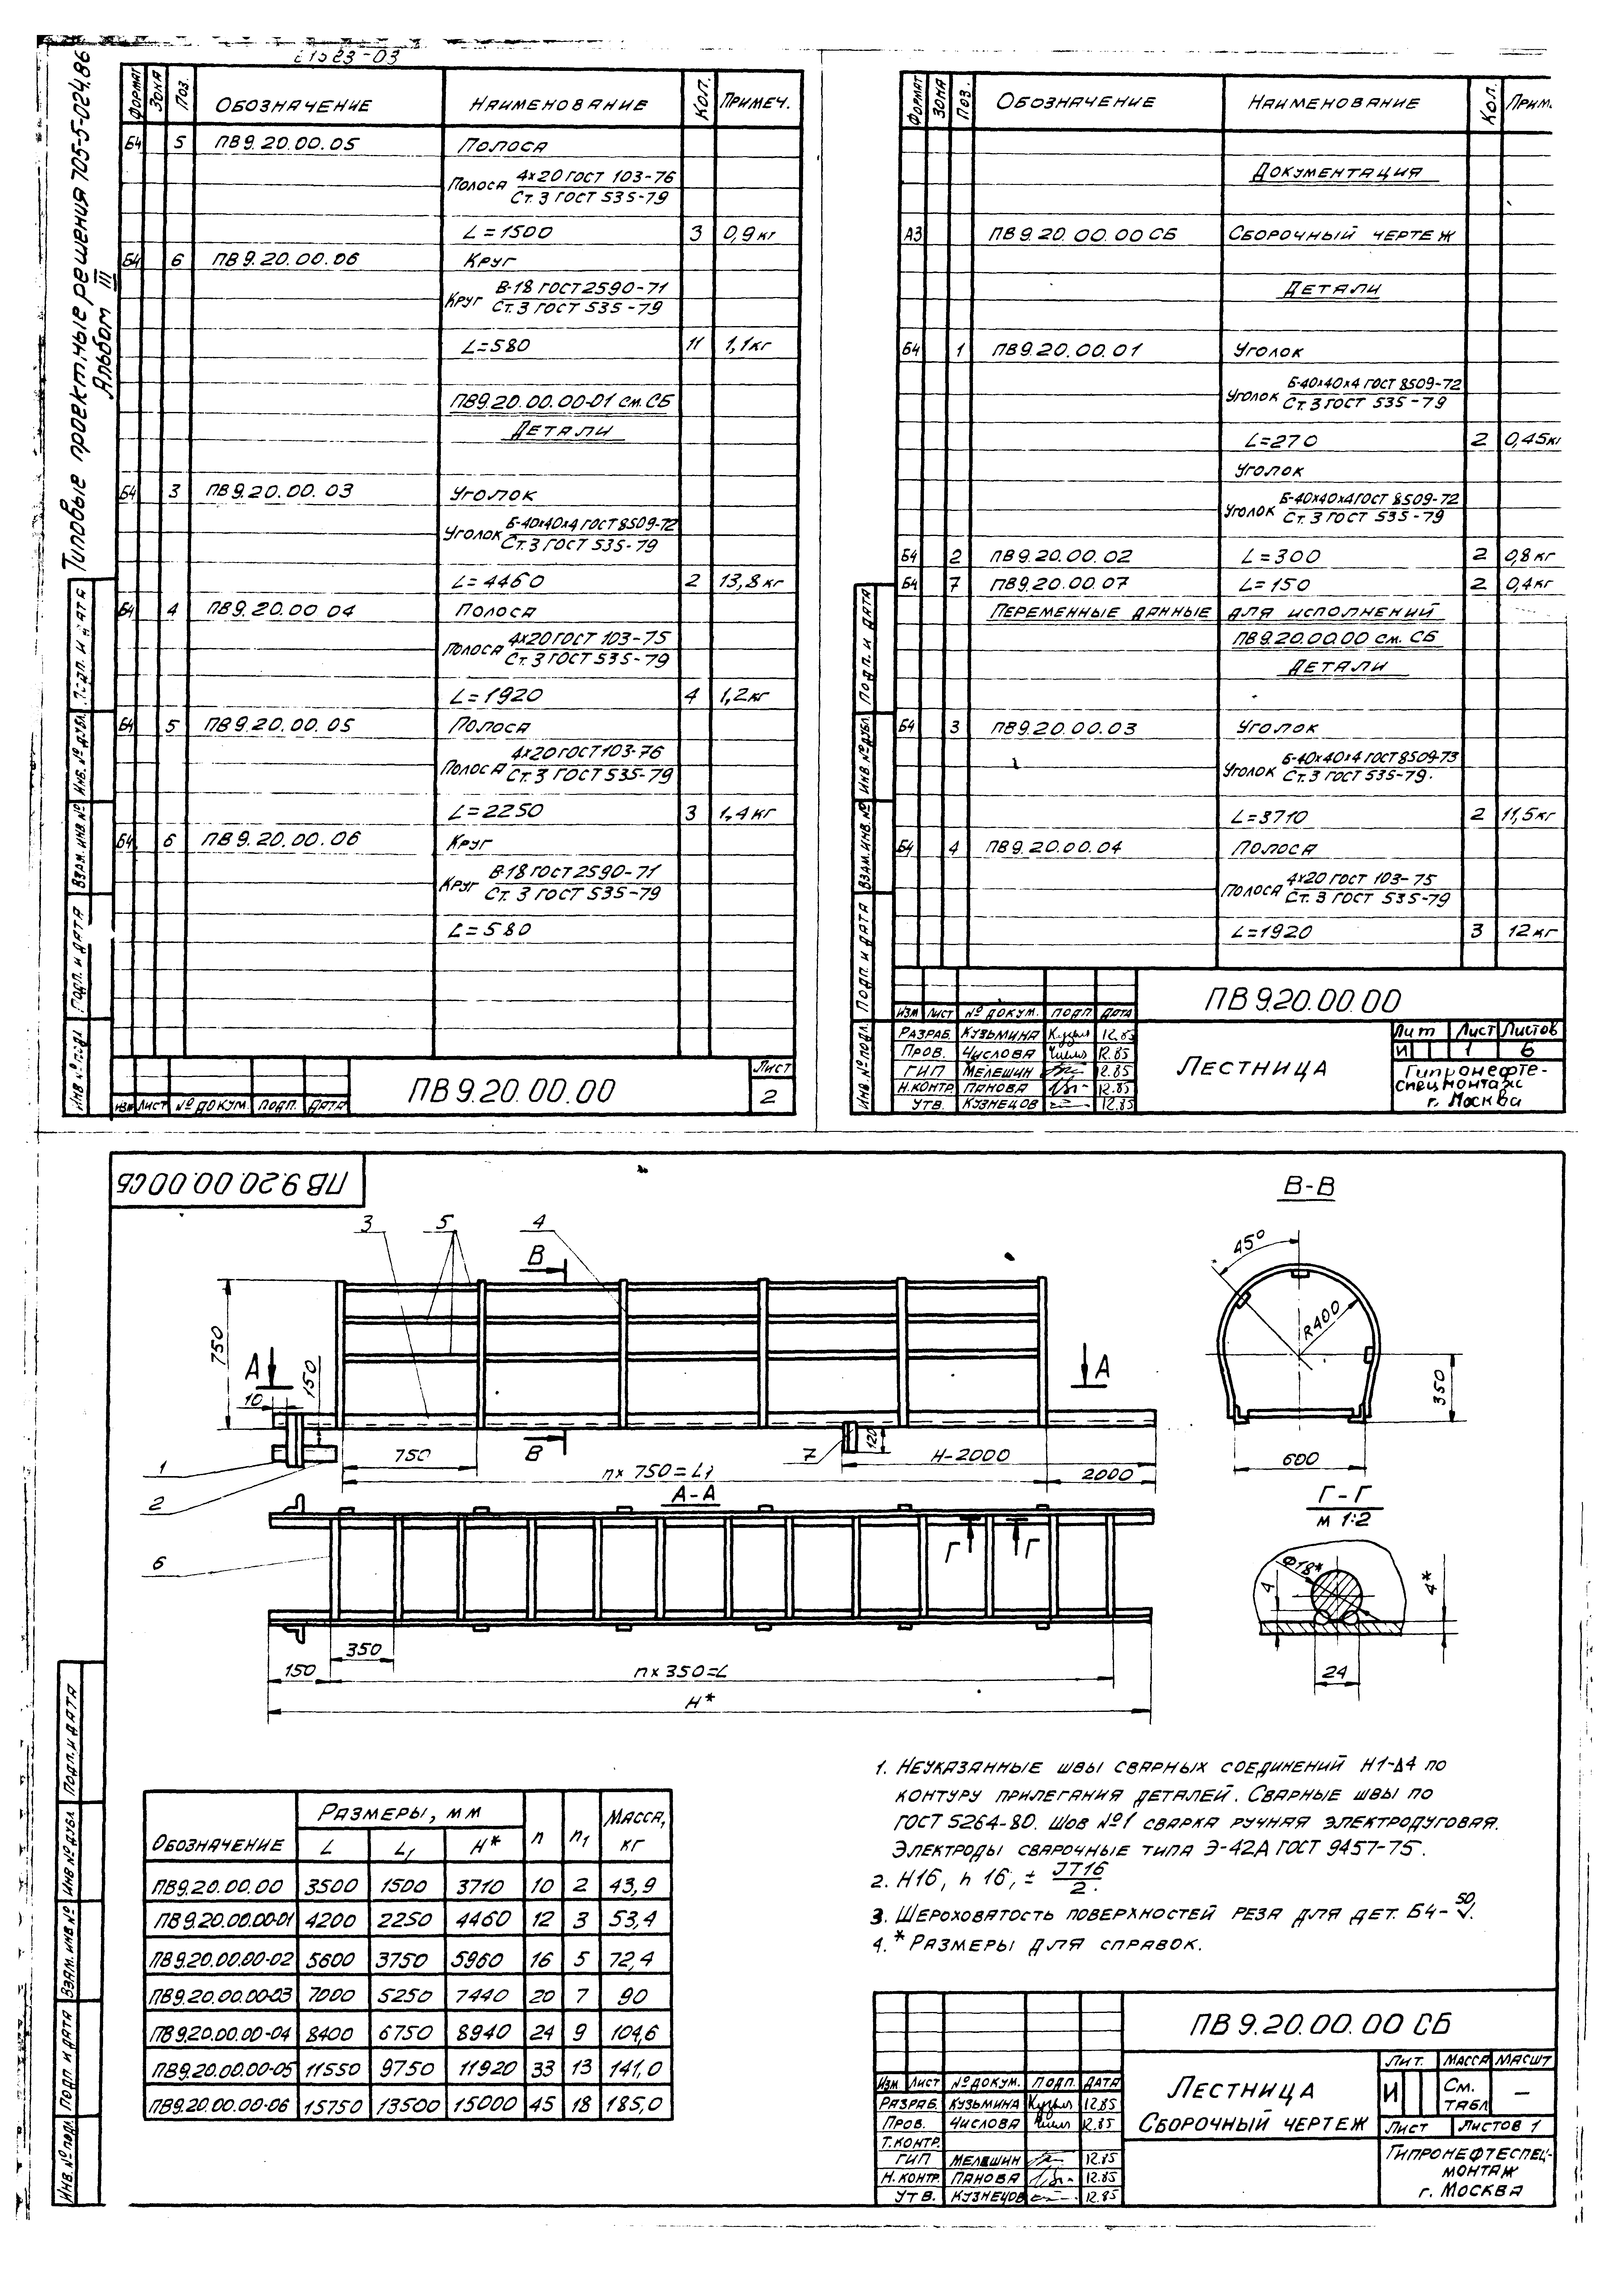 21523-03
Типовые проектные решения 705-5-024.86
Альбом III
Формат Зона Поз. Обозначение Наименование Кол. Примеч.
Б4 5 ПВ9.20.00.05 Полоса
Полоса 4х20 ГОСТ 103-76
Ст.3 ГОСТ 535-79
L=1500 3 0,9кг
Б4 6 ПВ9.20.00.06 Круг
Круг В-18 ГОСТ 2590-71
Ст.3 ГОСТ 535-79
L=580 11 1,1кг
ПВ9.20.00.00-01 см.СБ
Детали
Б4 3 ПВ9.20.00.03 Уголок
Уголок Б-40х40х4 ГОСТ 8509-72
Ст.3 ГОСТ 535-79
L=4460 2 13,8кг
Б4 4 ПВ9.20.00 04 Полоса
Полоса 4х20 ГОСТ 103-75
Ст.3 ГОСТ 535-79
L=1920 4 1,2кг
Б4 5 ПВ9.20.00.05 Полоса
Полоса 4х20 ГОСТ 103-76
Ст.3 ГОСТ 535-79
L=2250 3 1,4кг
Б4 6 ПВ9.20.00.06 Круг
Круг В-18 ГОСТ 2590-71
Ст.3 ГОСТ 535-79
L=580
Инв № подл. Подп. и дата Взам. инв № Инв. № дубл. Подп. и дата
Изм Лист № докум. Подп. Дата
ПВ9.20.00.00
Лист
2
Формат Зона Поз. Обозначение Наименование Кол. Прим.
Документация
А3 ПВ9.20.00.00 СБ Сборочный чертеж
Детали
Б4 1 ПВ9.20.00.01 Уголок
Уголок Б-40х40х4 ГОСТ 8509-72
Ст.3 ГОСТ 535-79
L=270 2 0,45кг
Уголок
Уголок Б-40х40х4 ГОСТ 8509-72
Ст.3 ГОСТ 535-79
Б4 2 ПВ9.20.00.02 L=300 2 0,8кг
Б4 7 ПВ9.20.00.07 L=150 2 0,4кг
Переменные данные для исполнений
ПВ9.20.00.00 см. СБ
Детали
Б4 3 ПВ9.20.00.03 Уголок
Уголок Б-40х40х4 ГОСТ 8509-73
Ст.3 ГОСТ 535-79.
L=3710 2 11,5кг
Б4 4 ПВ9.20.00.04 Полоса
Полоса 4х20 ГОСТ 103-75
Ст.3 ГОСТ 535-79
L=1920 3 12кг
Инв № подл. Подп. и дата Взам. инв. № Инв № дубл. Подп. и дата
ПВ9.20.00.00
Изм Лист № докум. Подп Дата
Разраб. Кузьмина 12.85
Пров. Числова 12.85
ГИП Мелешин 12.85
Н.контр Панова 12.85
Утв. Кузнецов 12.85
Лестница
Лит Лист Листов
И 1 6
Гипронефте-
спецмонтаж
г. Москва
ПВ9.20.00.00СБ
3 5 4
В
750
А
150
10
А
В
7
120
Н-2000
750
n х 750=L1
2000
1
2
А-А
6
Г Г
350
150
n х 350=L
Н*
В-В
45°
R400
350
600
Г-Г
М 1:2
Ф18*
4
4*
24
Обозначение Размеры, мм n n1 Масса, кг
L L1 Н*
ПВ9.20.00.00 3500 1500 3710 10 2 43,9
ПВ9.20.00.00-01 4200 2250 4460 12 3 53,4
ПВ9.20.00.00-02 5600 3750 5960 16 5 72,4
ПВ9.20.00.00-03 7000 5250 7440 20 7 90
ПВ9.20.00.00-04 8400 6750 8940 24 9 104,6
ПВ9.20.00.00-05 11550 9750 11920 33 13 141,0
ПВ9.20.00.00-06 15750 13500 15000 45 18 185,0
1. Неуказанные швы сварных соединений Н1-Δ4 по
контуру прилегания деталей. Сварные швы по
ГОСТ 5264-80. Шов №1 сварка ручная электродуговая.
Электроды сварочные типа Э-42А ГОСТ 9457-75.
2. Н16, h 16, ± JT16/2.
3. Шероховатость поверхностей реза для дет. Б4- 50√.
4.* Размеры для справок.
Инв. № подл Подп и дата Взам. инв № Инв № дубл Подп. и дата
ПВ9.20.00.00 СБ
Изм Лист № докум. Подп. Дата
Разраб. Кузьмина 12.85
Пров. Числова 12.85
Т.контр.
ГИП Мелешин 12.85
Н.контр. Панова 12.85
Утв. Кузнецов 12.85
Лестница
Сборочный чертеж
Лит. Масса Масшт
И См. табл —
Лист Листов 1
Гипронефтеспец-
монтаж
г. Москва